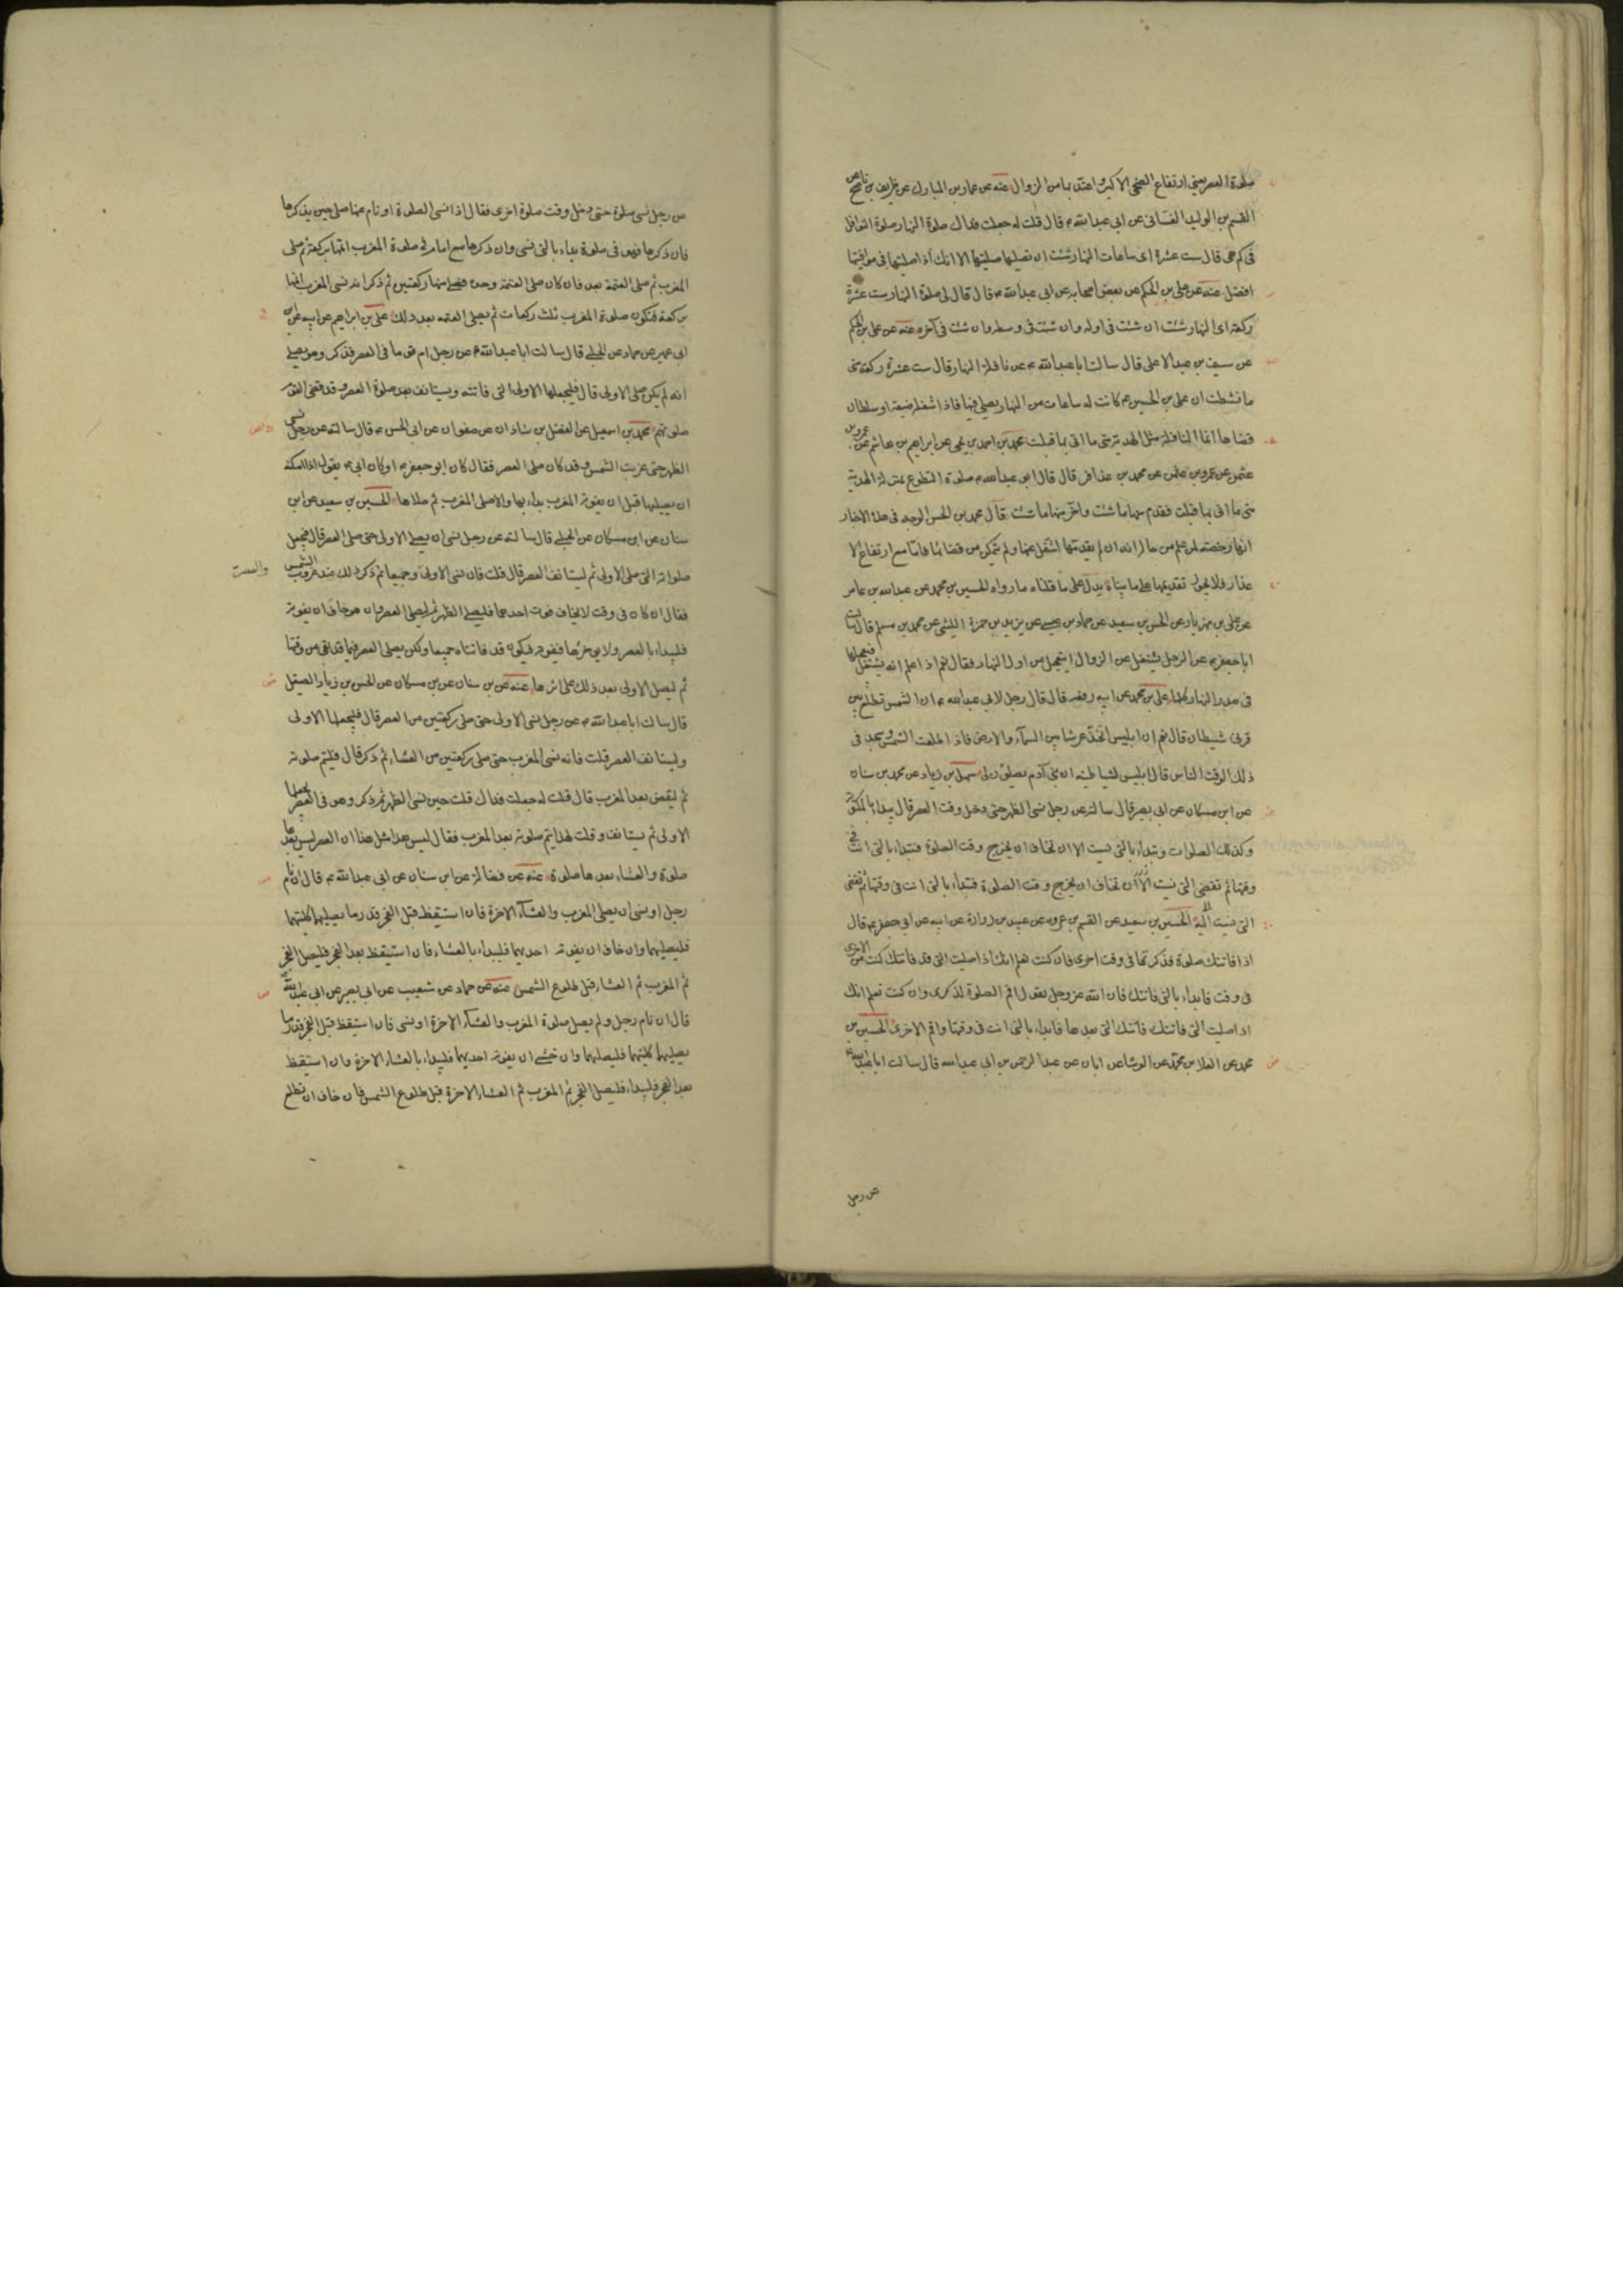 صلوة العصر يعني ارتفاع الضحى الاكبر واعتد بها من الزوال عنه عن عمار بن المبارك عن ظريف بن ناصح عن
القسم بن الوليد الغساني عن ابي عبد الله ع قال قلت له جعلت فداك صلوة النهار صلوة النوافل
في كم هي قال ست عشرة اى ساعات النهار شئت ان تصليها صليتها الا انك اذا صليتها في مواقيتها
افضل عنه عن علي بن الحكم عن بعض اصحابه عن ابي عبد الله ع قال قال لي صلوة النهار ست عشرة
ركعة اى النهار شئت ان شئت في اوله وان شئت في وسطه وان شئت في آخره عنه عن علي بن الحكم
عن سيف بن عبد الاعلى قال سالت ابا عبد الله ع عن نافلة النهار قال ست عشرة ركعة متى
ما نشطت ان علي بن الحسين ع كانت له ساعات من النهار يصلي فيها فاذا شغله ضيعة او سلطان
قضاها انما النافلة مثل الهدية متى ما اتى بها قبلت محمد بن احمد بن يحيى عن ابراهيم بن هاشم عن عمرو بن
عثمن عن محمد بن عذافر قال قال ابو عبد الله ع صلوة التطوع بمنزلة الهدية
متى ما اتى بها قبلت فقدم منها ما شئت واخر منها ما شئت قال محمد بن الحسن الوجه في هذه الاخبار
انها رخصة لمن علم من حاله انه ان لم يقدمها اشتغل عنها ولم يتمكن من قضائها فاما مع ارتفاع الا
عذار فلا يجوز تقديمها على ما بيناه يدل على ما قلناه ما رواه الحسين بن محمد عن عبد الله بن عامر
عن علي بن مهزيار عن الحسن بن سعيد عن حماد بن عيسى عن يزيد بن حمزة الليثي عن محمد بن مسلم قال سالت
ابا جعفر ع عن الرجل يشتغل عن الزوال ايتعجل من اول النهار فقال نعم اذا علم انه يشتغل فيعجلها
في صدر النهار كلها علي بن محمد عن ابيه رفعه قال قال رجل لابي عبد الله ع ان الشمس تطلع بين
قرني شيطان قال نعم ان ابليس اتخذ عرشا بين السمآء والارض فاذا طلعت الشمس وسجد في
ذلك الوقت الناس قال ابليس لشياطينه ان بني آدم يصلون لي سهل بن زياد عن محمد بن سنان
عن ابن مسكان عن ابي بصير قال سالته عن رجل نسي الظهر حتى دخل وقت العصر قال يبدا بالمكتوبة
وكذلك الصلوات وتبداء بالتي نسيت الا ان تخاف ان يخرج وقت الصلوة فتبداء بالتي انت في
وقتها ثم تقضي التي نسيت الا ان تخاف ان يخرج وقت الصلوة فتبداء بالتي انت في وقتها ثم تقضي
التي نسيت الحسين بن سعيد عن القسم بن عروه عن عبيد بن زرارة عن ابيه عن ابي جعفر ع قال
اذا فاتتك صلوة فذكرتها في وقت اخرى فان كنت تعلم انك اذا صليت التي قد فاتتك كنت من الاخرى
في وقت فابداء بالتي فاتتك فان الله عز وجل يقول اقم الصلوة لذكرى وان كنت تعلم انك
اذا صليت التي فاتتك فاتتك التي بعدها فابداء بالتي انت في وقتها واقم الاخرى الحسين بن
محمد عن المعلا بن محمد عن الوشا عن ابان عن عبد الرحمن بن ابي عبد الله قال سالت ابا عبد الله ع
عن رجل
عن رجل نسي صلوة حتى دخل وقت صلوة اخرى فقال اذا نسي الصلوة او نام عنها صلى حين يذكرها
فان ذكرها وهو في صلوة بداء بالتي نسي وان ذكرها مع امام في صلوة المغرب اتمها بركعة ثم صلى
المغرب ثم صلى العتمة بعد فان كان صلى العتمة وحده فصلى منها ركعتين ثم ذكر انه نسي المغرب اتمها
بركعة فتكون صلوة المغرب ثلث ركعات ثم يصلي العتمه بعد ذلك علي بن ابراهيم عن ابيه عن ابن
ابي عمير عن حماد عن الحلبي قال سالت ابا عبد الله ع عن رجل ام قوما في العصر فذكر وهو يصلي
انه لم يكن صلى الاولى قال فليجعلها الاولى التي فاتته ويستانف بعد صلوة العصر وقد قضى القوم
صلوتهم محمد بن اسمعيل عن الفضل بن شاذان عن صفوان عن ابي الحسن ع قال سالته عن رجل نسي
الظهر حتى غربت الشمس وقد كان صلى العصر فقال كان ابو جعفر ع او كان ابي ع يقول اذا امكنه
ان يصليها قبل ان يفوته المغرب بداء بها والا صلى المغرب ثم صلاها الحسين بن سعيد عن ابن
سنان عن ابن مسكان عن الحلبي قال سالته عن رجل نسي ان يصلي الاولى حتى صلى العصر قال فليجعل
صلوته التي صلى الاولى ثم ليستانف العصر قال قلت فان نسي الاولى وجميعا ثم ذكر ذلك عند غروب الشمس
والعصر
فقال ان كان في وقت لا يخاف فوت احدهما فليصلي الظهر ثم ليصلي العصر وان هو خاف ان يفوته
فليبداء بالعصر ولا يوخرها فيفوته فيكون قد فاتتاه جميعا ولكن يصلي العصر فيما قد بقي من وقتها
ثم ليصل الاولى بعد ذلك على اثرها عنه عن بن سنان عن بن مسكان عن الحسن بن زياد الصيقل
قال سالت ابا عبد الله ع عن رجل نسي الاولى حتى صلى ركعتين من العصر قال فليجعلها الاولى
وليستانف العصر قلت فانه نسي المغرب حتى صلى ركعتين من العشاء ثم ذكر قال فليتم صلوته
ثم ليقض بعد المغرب قال قلت له جعلت فداك قلت حين نسي الظهر ثم ذكر وهو في العصر يجعلها
الاولى ثم يستانف وقلت لهذا يتم صلوته بعد المغرب فقال ليس هذا مثل هذا ان العصر ليس بعدها
صلوة والعشاء بعدها صلوة عنه عن فضالة عن ابن سنان عن ابي عبد الله ع قال ان نام
رجل او نسي ان يصلي المغرب والعشآء الاخرة فان استيقظ قبل الفجر قدر ما يصليهما كلتيهما
فليصليهما وان خاف ان يفوته احديهما فليبداء بالعشاء فان استيقظ بعد الفجر فليصل الفجر
ثم المغرب ثم العشاء قبل طلوع الشمس عنه عن حماد عن شعيب عن ابي بصير عن ابي عبد الله ع
قال ان نام رجل ولم يصل صلوة المغرب والعشآء الاخرة او نسي فان استيقظ قبل الفجر قدر ما
يصليهما كلتيهما فليصليهما وان خشي ان يفوته احديهما فليبداء بالعشاء الاخرة وان استيقظ
بعد الفجر فليبداء فليصل الفجر ثم المغرب ثم العشاء الاخرة قبل طلوع الشمس فان خاف ان تطلع